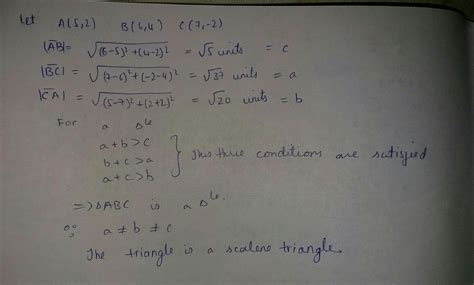 let A(5,2) B(6,4) C(7,-2)
|AB| = √(6-5)²+(4-2)² = √5 units = c
|BC| = √(7-6)²+(-2-4)² = √37 units = a
|CA| = √(5-7)²+(2+2)² = √20 units = b
For a Δle
a+b>c
b+c>a } This three conditions are satisfied
a+c>b
=> ΔABC is a Δle.
∵ a ≠ b ≠ c
The triangle is a scalene triangle.